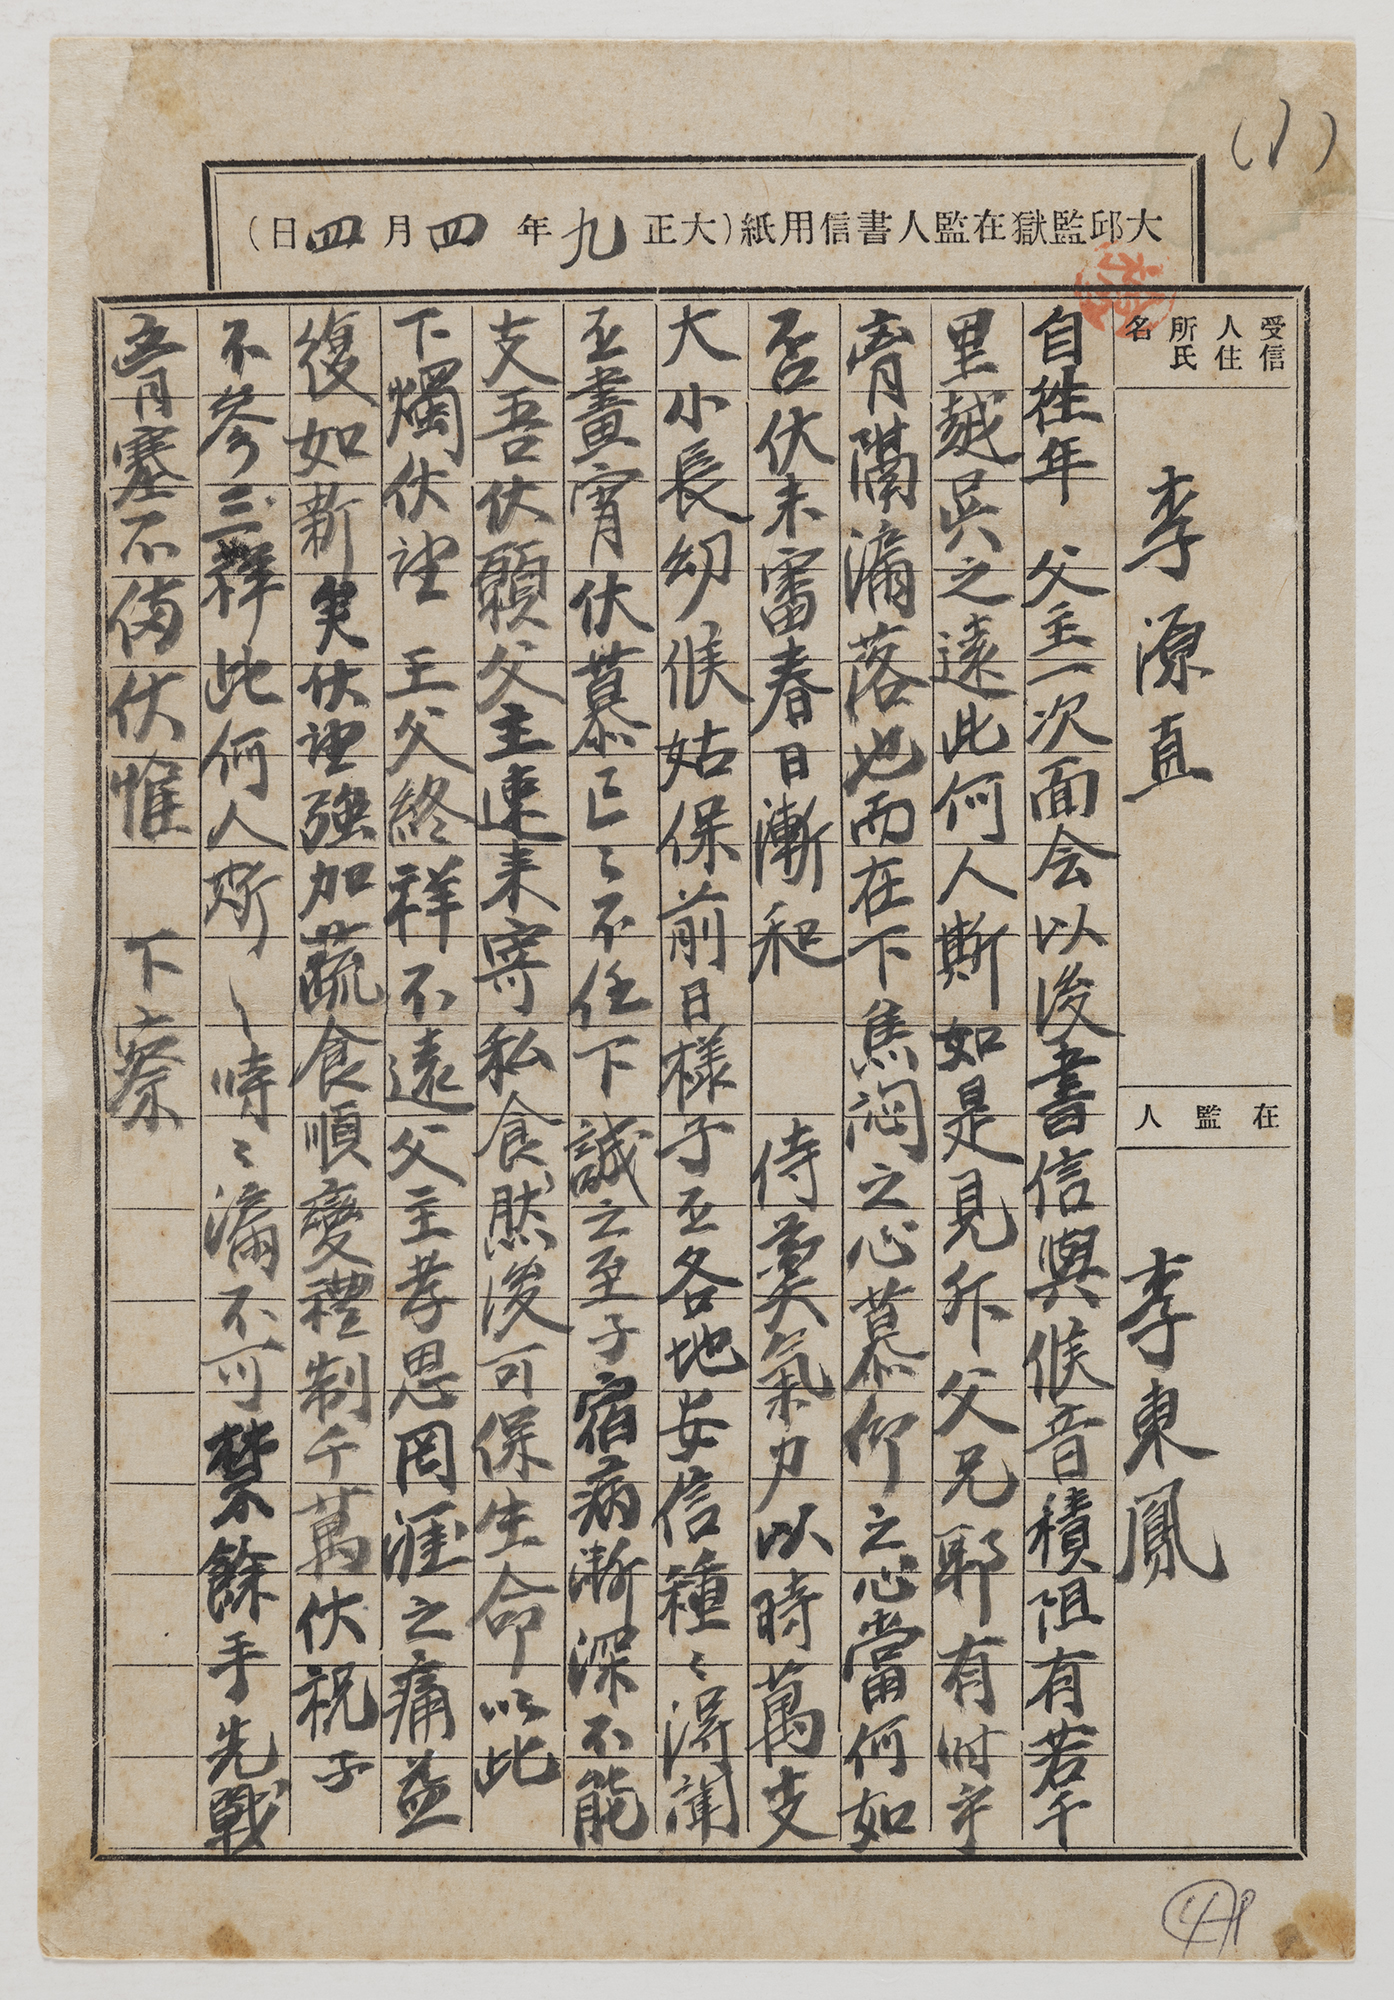 (1)
大邱監獄在監人書信用紙(大正九年四月四日)
受信人住所氏名
李源直
在監人
李東鳳
自往年 父主一次面会以後書信與候音積阻有若千
里越吳之遠此何人斯如是見斥父兄耶有時乎
膏隔滿落也而在下焦悶之心慕仰之心當何如
否伏未審春日漸和 侍奠氣力以時萬支
大小長幼候姑保前日樣子並各地安信種〻得聞
並晝宵伏慕區〻不任下誠之至子宿病漸深不能
支吾伏願父主速来寄私食然後可保生命以此
下燭伏望 王父終祥不遠父主孝思罔涯之痛益
復如新矣伏望強加蔬食順變禮制千萬伏祝子
不參三祥此何人斯〻時〻滿不可禁餘手先戰
胷塞不備伏惟 下察